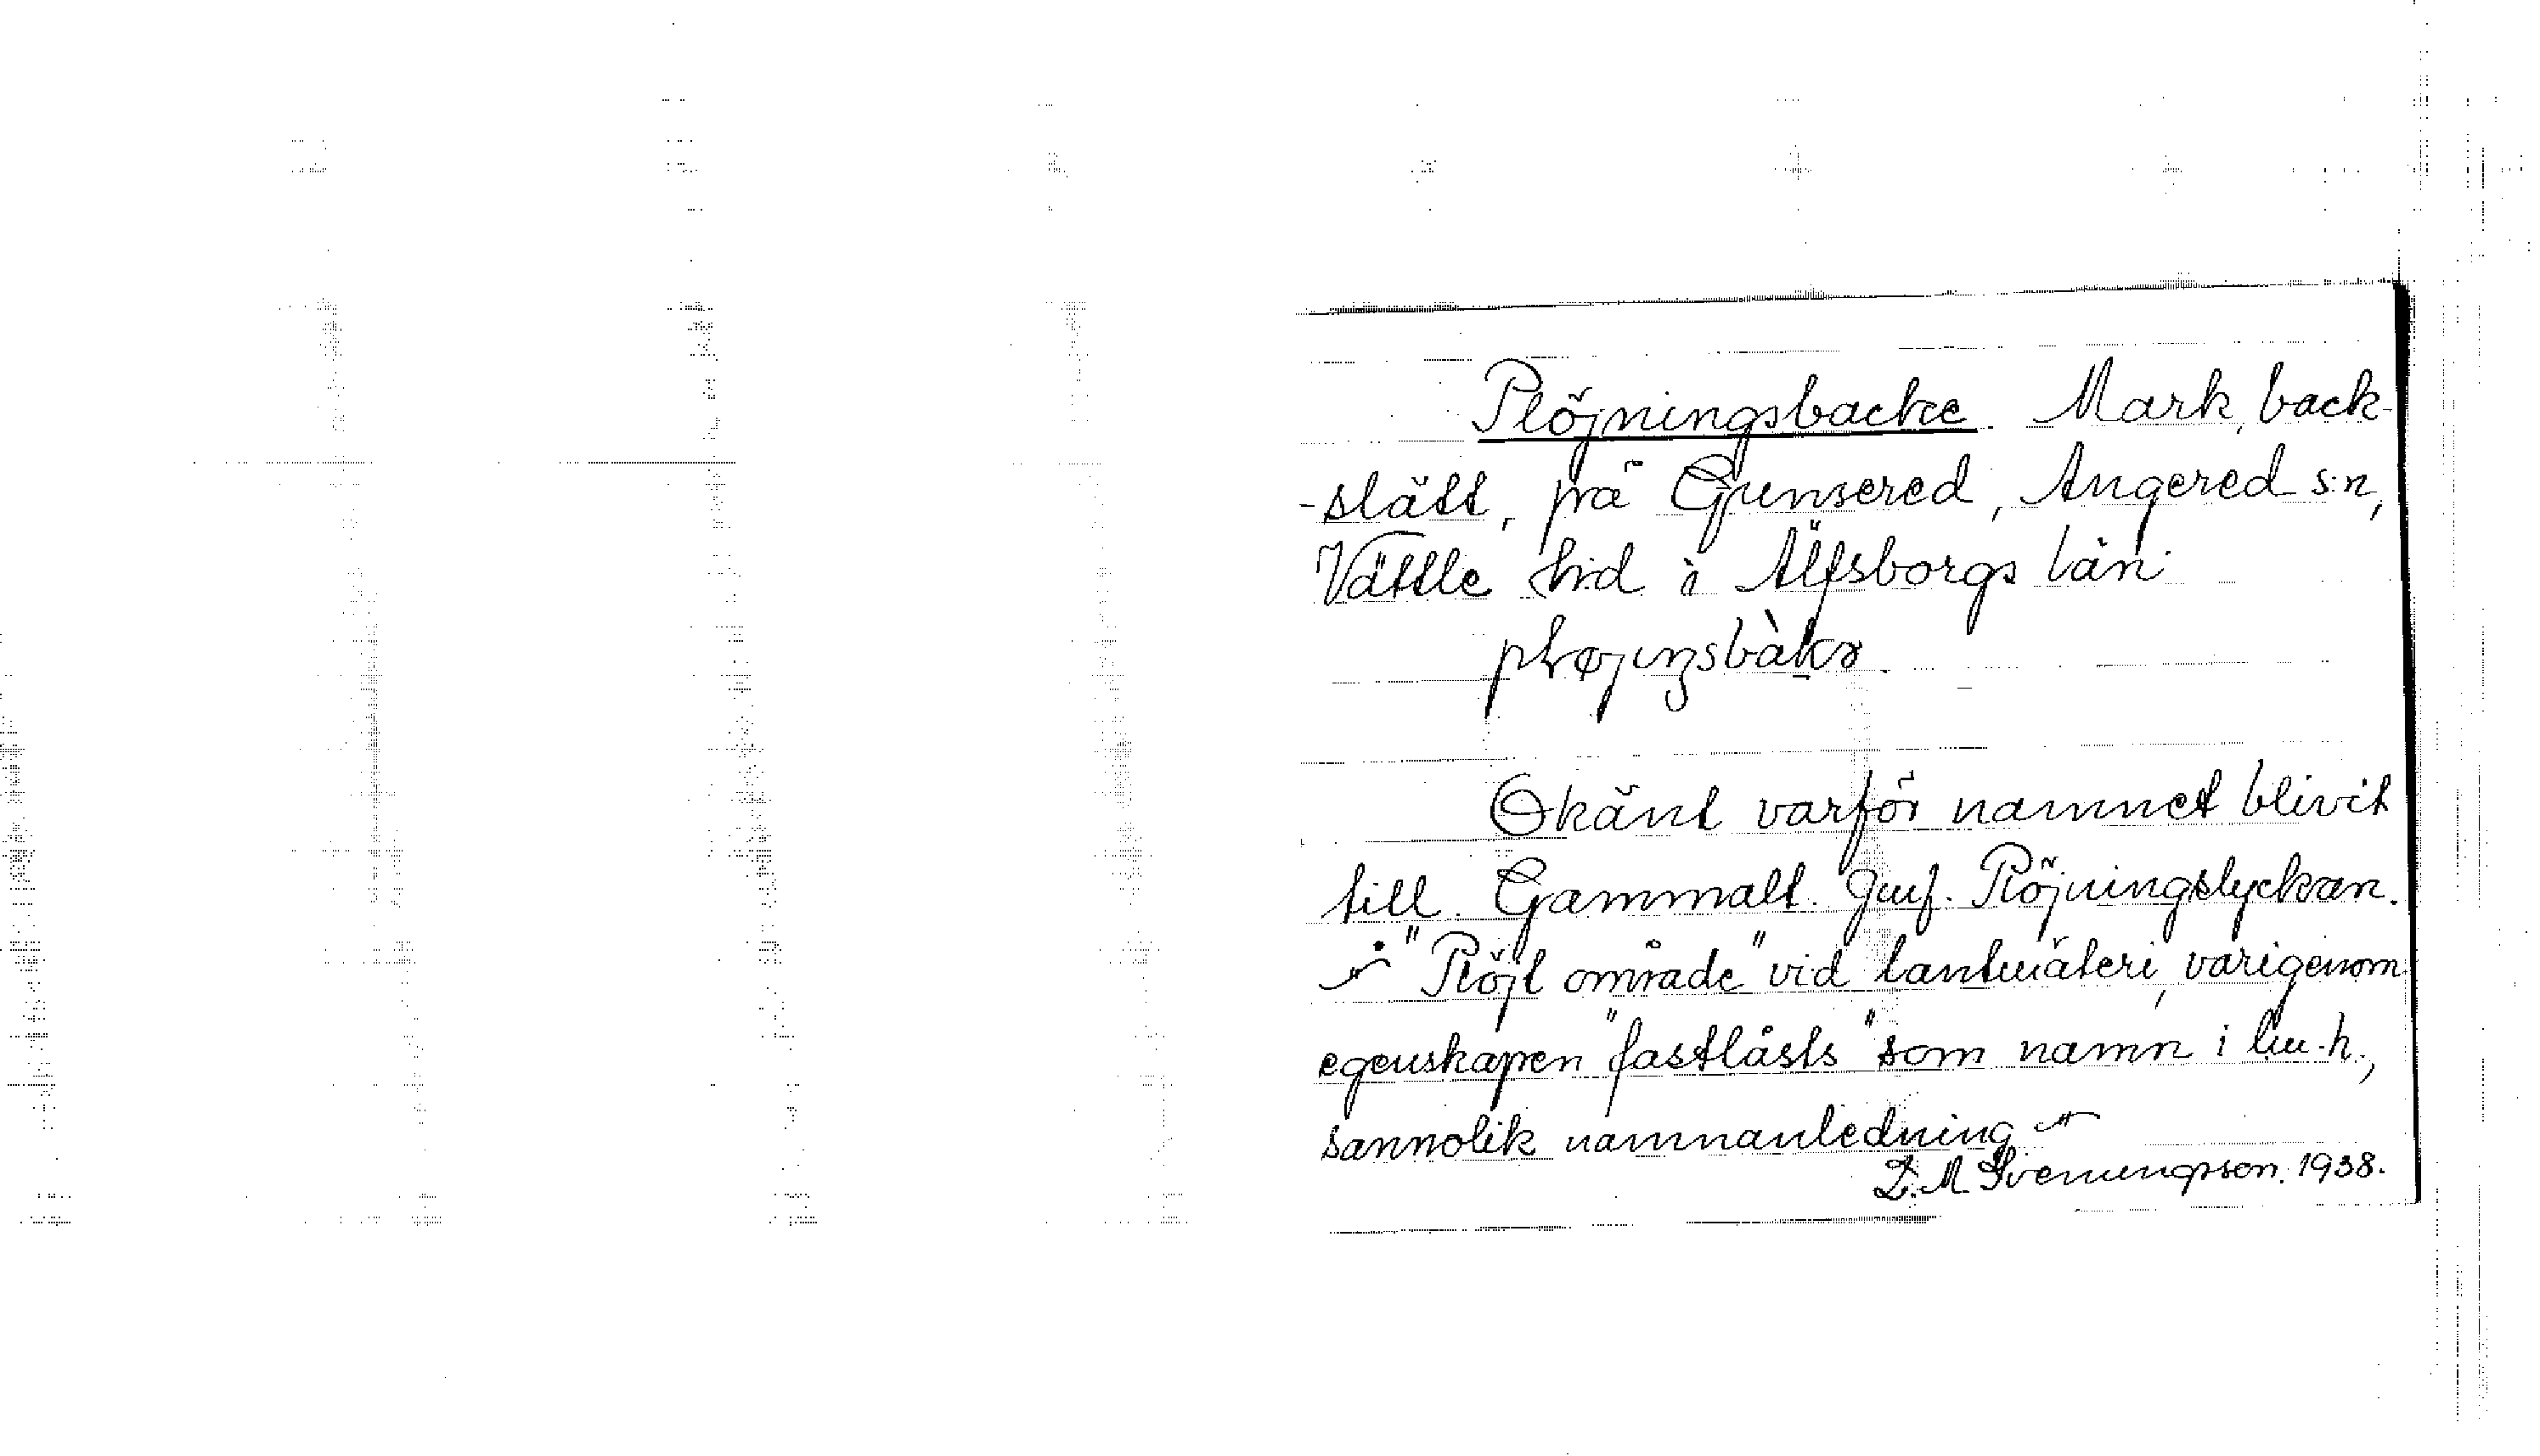 Plöjningsbacke. Mark, back-
-slätt, på Gunsered, Angered s:n,
Vättle hd i Älfsborgs län
pløjıŋsbàkə.
Okänt varför namnet blivit
till. Gammalt. Jmf. Plöjningslyckan.
"Plöjt område" vid lantmäteri, varigenom
egenskapen "fastlåsts" som namn i lm.h.,
sannolik namnanledning
L. M. Svenungsson. 1938.